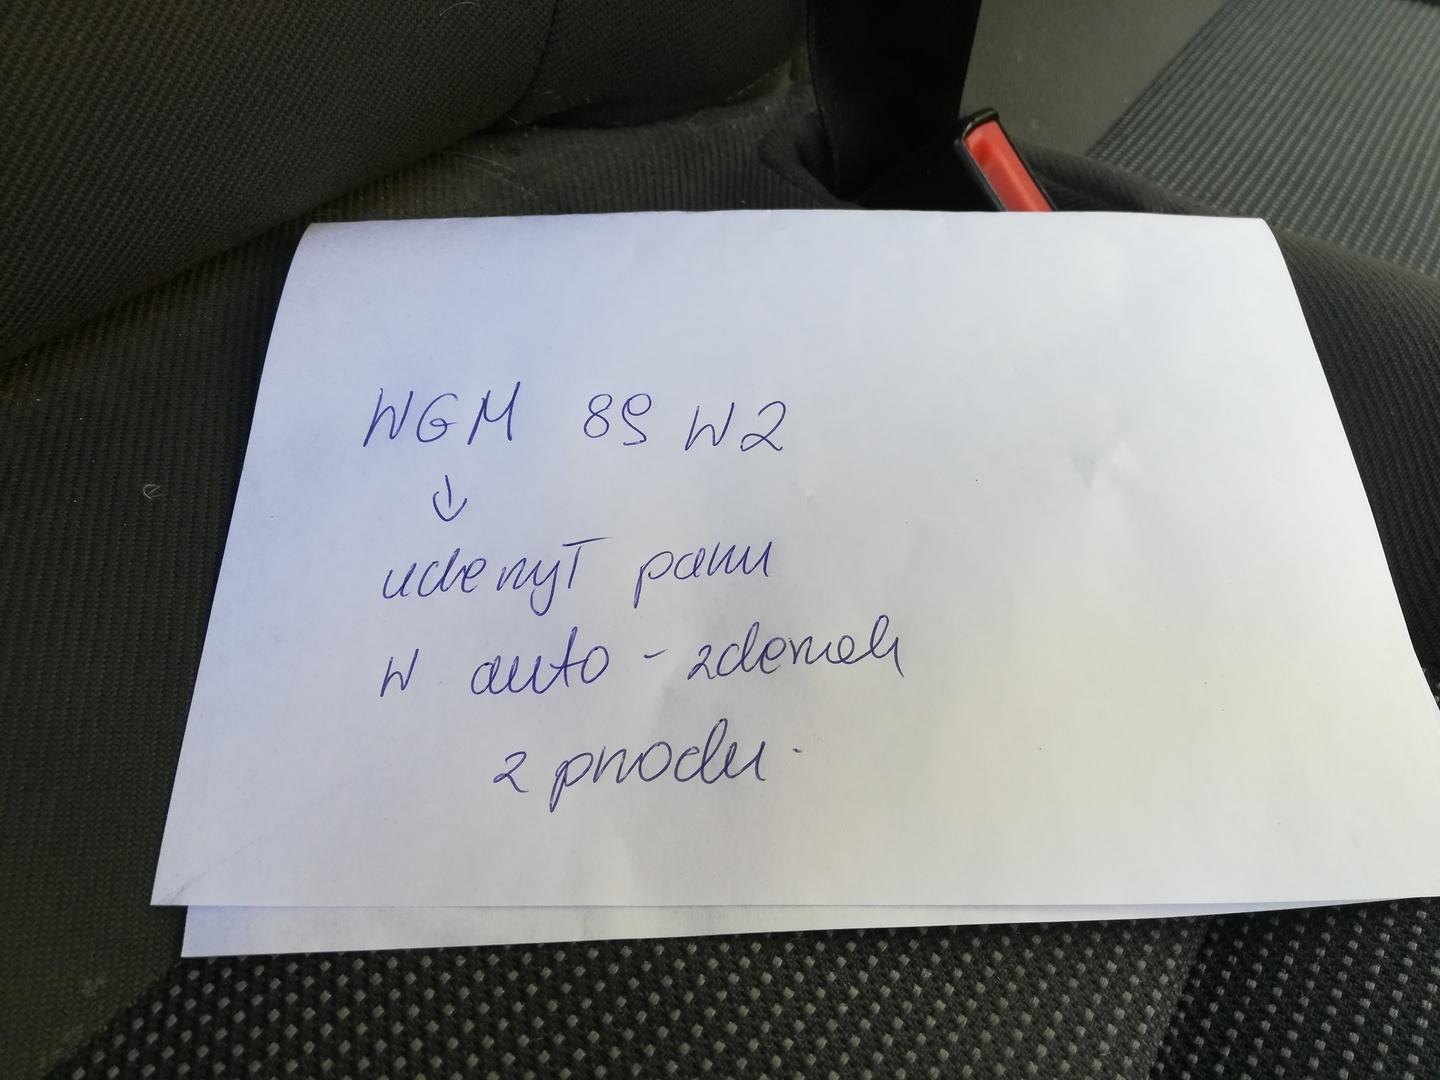 WGM 89 W2
↓
uderzył panu
w auto - zderzak
z przodu.